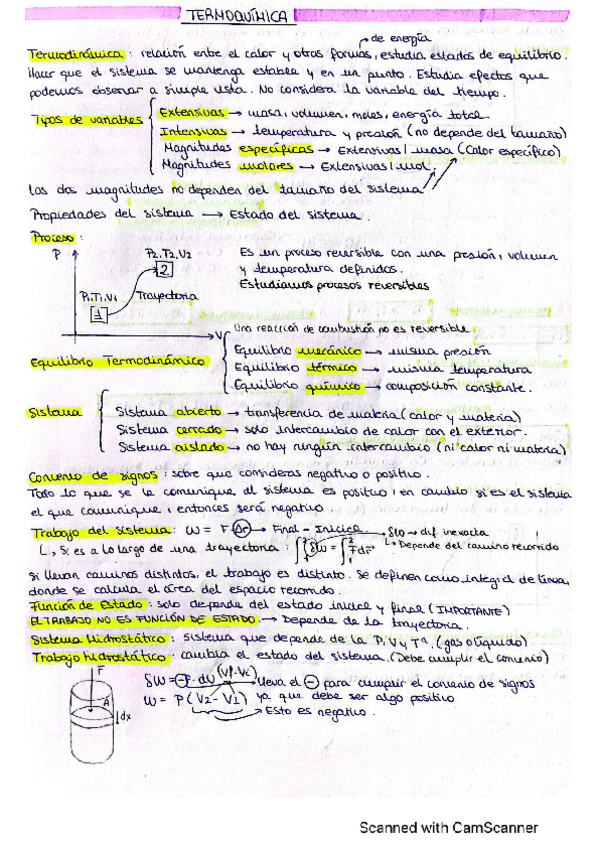 TERMOQUÍMICA
de energía
Termodinámica : relación entre el calor y otras formas, estudia estados de equilibrio.
Hacer que el sistema se mantenga estable y en un punto. Estudia efectos que
podemos observar a simple vista. No considera la variable del tiempo.
Tipos de variables
Extensivas → masa, volumen, moles, energía total.
Intensivas → temperatura y presión (no depende del tamaño)
Magnitudes específicas → Extensivas/masa (Calor específico)
Magnitudes molares → Extensivas/mol
Las dos magnitudes no dependen del tamaño del sistema
Propiedades del sistema → Estado del sistema.
Proceso :
P
P2, T2, V2
2
P1, T1, V1
1
Trayectoria
V
Es un proceso reversible con una presión, volumen
y temperatura definidos.
Estudiamos procesos reversibles
Una reacción de combustión no es reversible.
Equilibrio Termodinámico
Equilibrio mecánico → misma presión
Equilibrio térmico → misma temperatura
Equilibrio químico → composición constante.
Sistema
Sistema abierto → transferencia de materia (calor y materia)
Sistema cerrado → solo intercambio de calor con el exterior.
Sistema aislado → no hay ningún intercambio (ni calor ni materia)
Convenio de signos : sobre que consideras negativo o positivo.
Todo lo que se le comunique al sistema es positivo, en cambio si es el sistema
el que comunique, entonces será negativo
Trabajo del sistema : W = F Δr → Final - Inicial
δW → dif. inexacta
Depende del camino recorrido
Si es a lo largo de una trayectoria : ∫₁² δW = ∫₁² F dr
Si llevan caminos distintos, el trabajo es distinto. Se definen como integral de línea,
donde se calcula el área del espacio recorrido.
Función de Estado : solo depende del estado inicial y final (IMPORTANTE)
EL TRABAJO NO ES FUNCIÓN DE ESTADO. → Depende de la trayectoria.
Sistema Hidrostático : sistema que depende de la P, V y Tª. (gas o líquido)
Trabajo hidrostático : cambia el estado del sistema. (Debe cumplir el convenio)
F
A
dx
δW = -P · dV → lleva el - para cumplir el convenio de signos
W = P (V2 - V1) ya que debe ser algo positivo
Esto es negativo.
Scanned with CamScanner